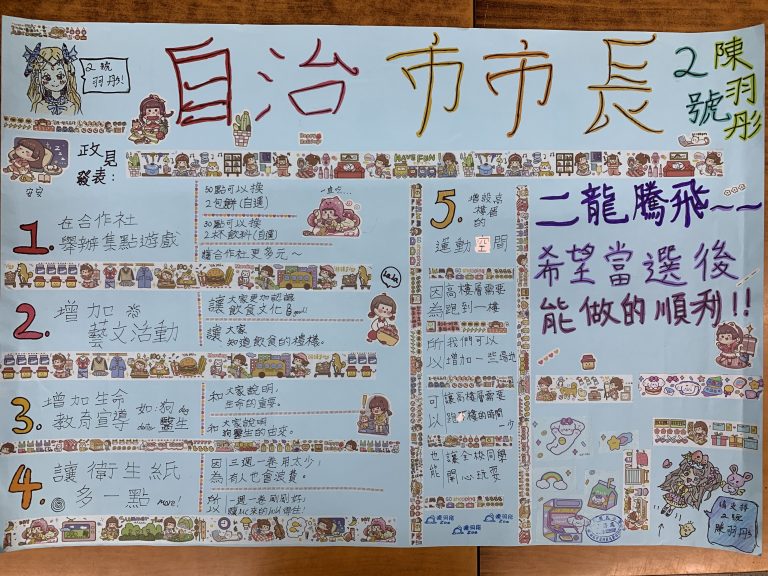 自治市市長
2號
陳羽彤
2號
羽彤!
政見
發表:
安安
1.在合作社
舉辦集點遊戲
50點可以換
2包餅(自選)
30點可以換
2杯飲料(自選)
讓合作社更多元~
2.增加
藝文活動
讓大家更加認識
飲食文化
讓大家
知道飲食的禮樓。
3.增加生命
教育宣導 如:狗
醫生
和大家說明,
生命的重要。
和大家說明
狗醫生的由來。
4.讓衛生紙
多一點 more!
因為
三週一卷用太少!
有人也會浪費。
所以
一週一卷剛剛好!
5.增設高
樓層
的
運動空間
因為
高樓層需要
跑到一樓
所以
我們可以
增加一些場地
可以
讓高樓層需要
跑樓的時間
少
也能
讓全校同學
開心玩耍
二龍騰飛~~
希望當選後
能做的順利!!
HAVE FUN
GO shopping
請支持
2號
陳羽彤